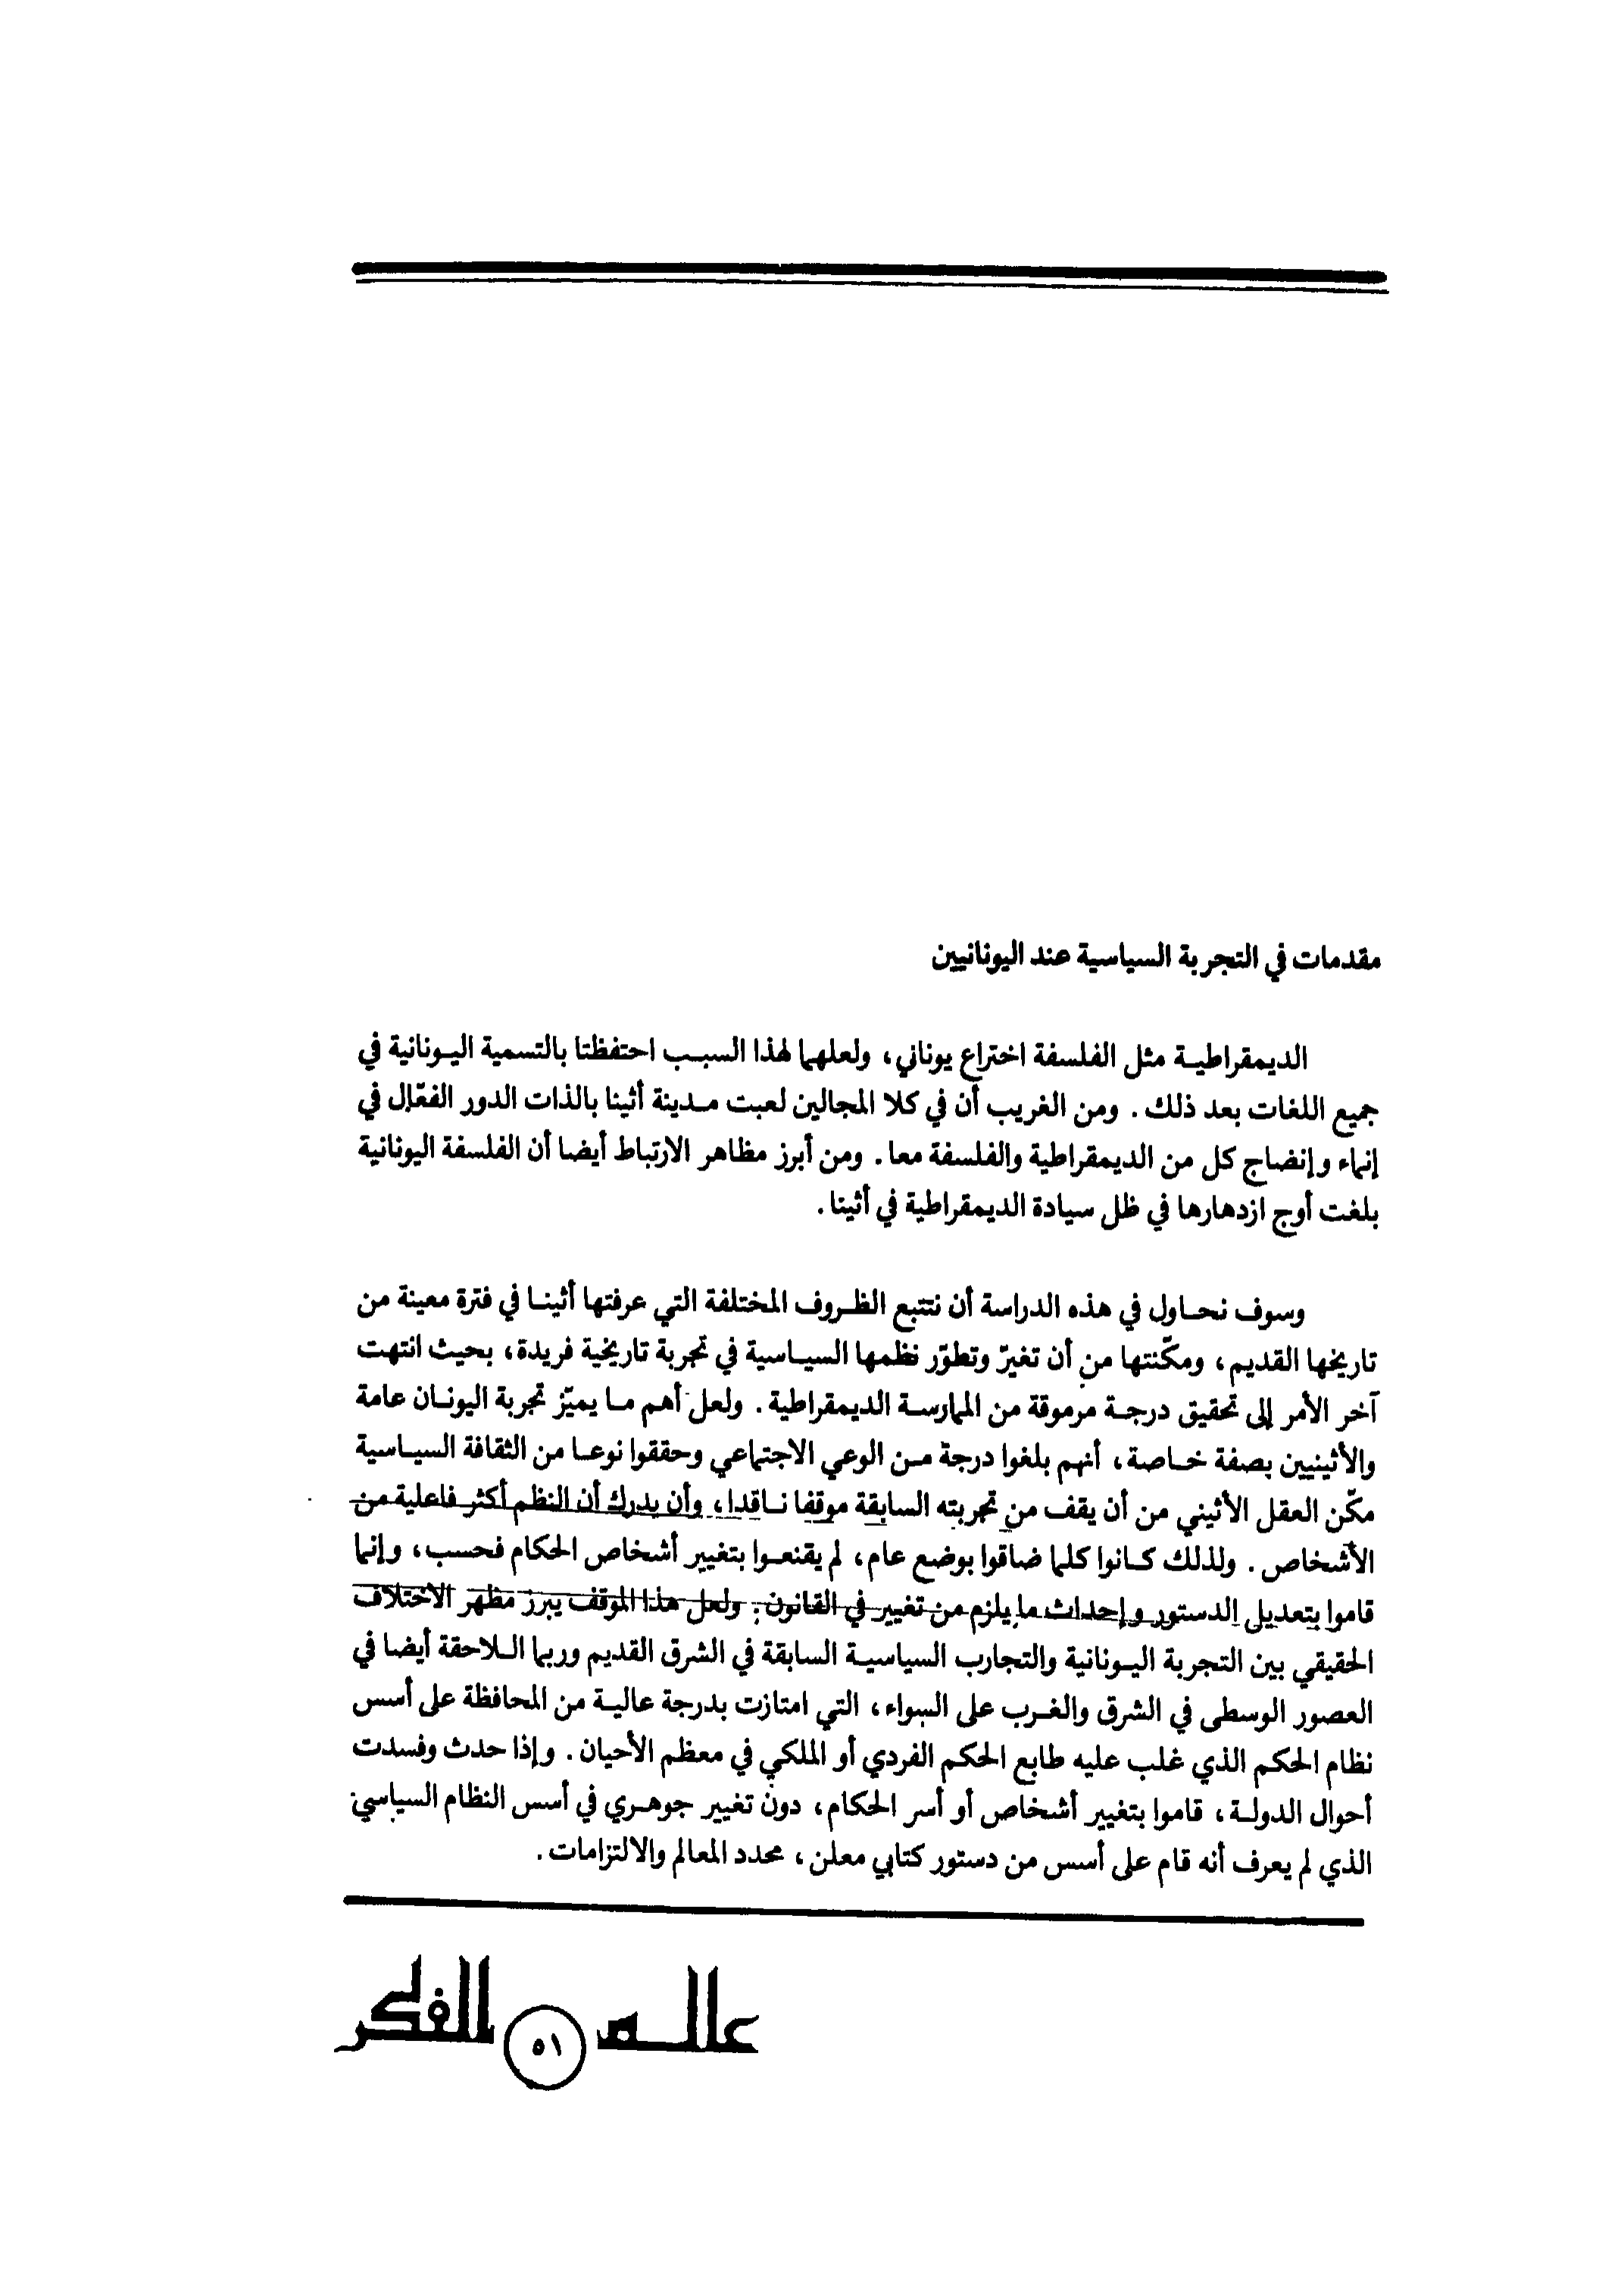 مقدمات في التجربة السياسية عند اليونانيين
الديمقراطية مثل الفلسفة اختراع يوناني، ولعلهما لهذا السبب احتفظتا بالتسمية اليونانية في
جميع اللغات بعد ذلك. ومن الغريب أن في كلا المجالين لعبت مدينة أثينا بالذات الدور الفعّال في
إنماء وإنضاج كل من الديمقراطية والفلسفة معا. ومن أبرز مظاهر الارتباط أيضا أن الفلسفة اليونانية
بلغت أوج ازدهارها في ظل سيادة الديمقراطية في أثينا.
وسوف نحاول في هذه الدراسة أن نتتبع الظروف المختلفة التي عرفتها أثينا في فترة معينة من
تاريخها القديم، ومكّنتها من أن تغيرّ وتطوّر نظمها السياسية في تجربة تاريخية فريدة، بحيث انتهت
آخر الأمر إلى تحقيق درجة مرموقة من الممارسة الديمقراطية. ولعل أهم ما يميّز تجربة اليونان عامة
والأثينيين بصفة خاصة، أنهم بلغوا درجة من الوعي الاجتماعي وحققوا نوعا من الثقافة السياسية
مكّن العقل الأثيني من أن يقف من تجربته السابقة موقفا ناقدا، وأن يدرك أن النظم أكثر فاعلية من
الأشخاص. ولذلك كانوا كلما ضاقوا بوضع عام، لم يقنعوا بتغيير أشخاص الحكام فحسب، وإنما
قاموا بتعديل الدستور وإحداث ما يلزم من تغيير في القانون. ولعل هذا الموقف يبرز مظهر الاختلاف
الحقيقي بين التجربة اليونانية والتجارب السياسية السابقة في الشرق القديم وربما اللاحقة أيضا في
العصور الوسطى في الشرق والغرب على السواء، التي امتازت بدرجة عالية من المحافظة على أسس
نظام الحكم الذي غلب عليه طابع الحكم الفردي أو الملكي في معظم الأحيان. وإذا حدث وفسدت
أحوال الدولة، قاموا بتغيير أشخاص أو أسر الحكام، دون تغيير جوهري في أسس النظام السياسي
الذي لم يعرف أنه قام على أسس من دستور كتابي معلن، محدد المعالم والالتزامات.
عالم ٥١ الفكر